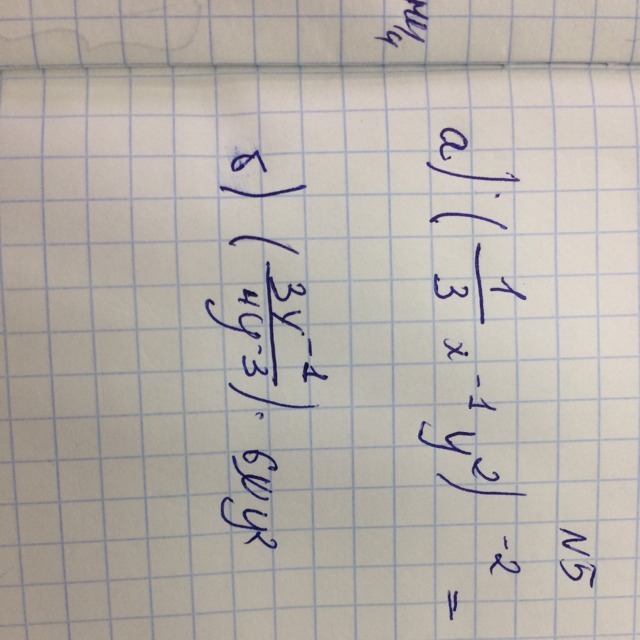 N5
а) (1/3 x⁻¹ y²)⁻² =
б) (3x⁻¹/4y⁻³) · 6xy²